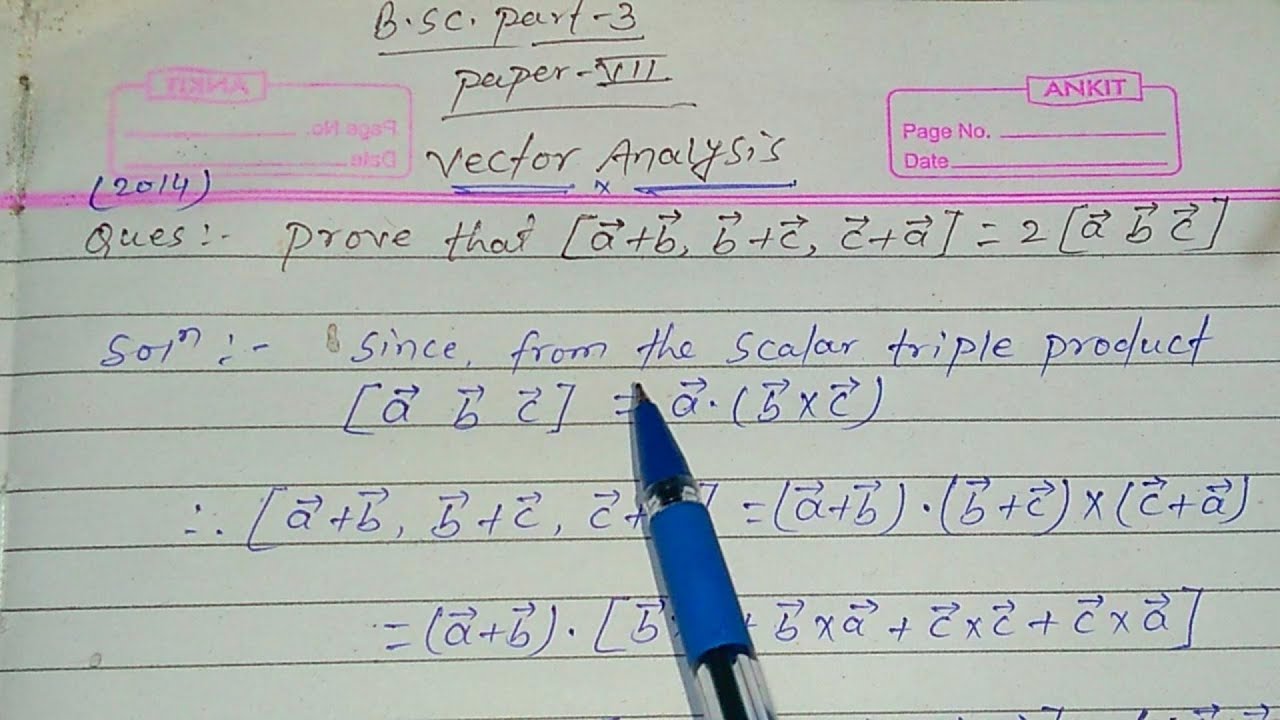 B.Sc. part-3
paper-VII
ANKIT
Page No.
Date
ANKIT
Page No.
Date
Vector Analysis
(2014)
Ques:- Prove that [a⃗+b⃗, b⃗+c⃗, c⃗+a⃗] = 2 [a⃗ b⃗ c⃗]
Solⁿ:- Since, from the scalar triple product
[a⃗ b⃗ c⃗] = a⃗·(b⃗×c⃗)
∴ [a⃗+b⃗, b⃗+c⃗, c⃗+ ] = (a⃗+b⃗)·(b⃗+c⃗)×(c⃗+a⃗)
= (a⃗+b⃗)·[b⃗ + b⃗×a⃗ + c⃗×c⃗ + c⃗×a⃗]